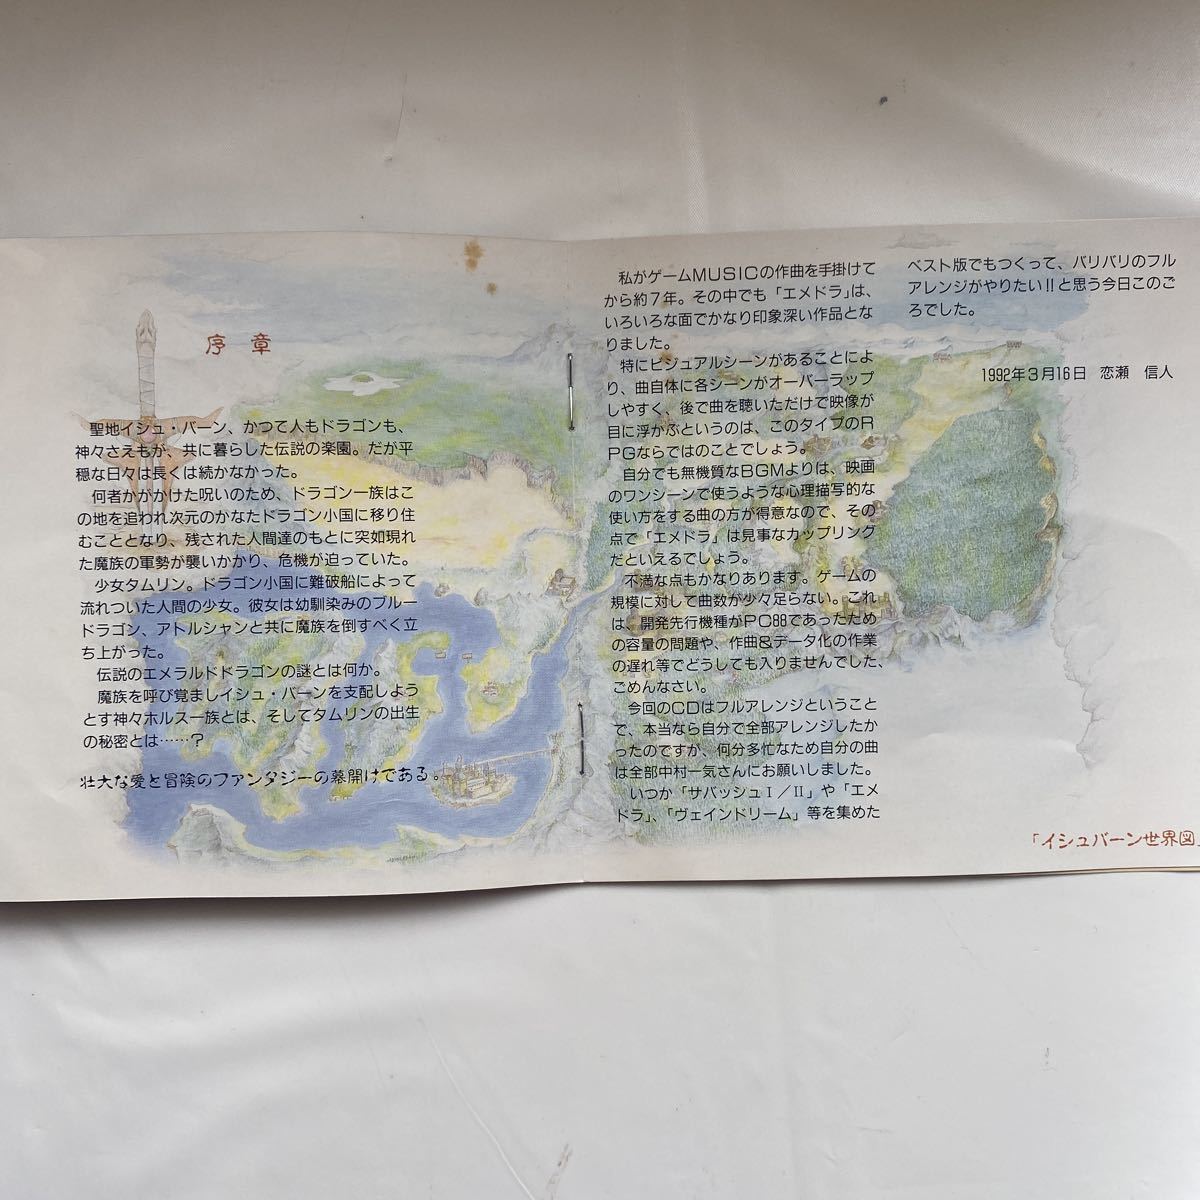 序章
聖地イシュ・バーン、かつて人もドラゴンも、
神々さえもが、共に暮らした伝説の楽園。だが平
穏な日々は長くは続かなかった。
何者かがかけた呪いのため、ドラゴン一族はこ
の地を追われ次元のかなたドラゴン小国に移り住
むこととなり、残された人間達のもとに突如現れ
た魔族の軍勢が襲いかかり、危機が迫っていた。
少女タムリン。ドラゴン小国に難破船によって
流れついた人間の少女。彼女は幼馴染みのブルー
ドラゴン、アトルシャンと共に魔族を倒すべく立
ち上がった。
伝説のエメラルドドラゴンの謎とは何か。
魔族を呼び覚ましイシュ・バーンを支配しよう
とす神々ホルス一族とは、そしてタムリンの出生
の秘密とは……？
壮大な愛と冒険のファンタジーの幕開けである。
私がゲームMUSICの作曲を手掛けて
から約７年。その中でも「エメドラ」は、
いろいろな面でかなり印象深い作品とな
りました。
特にビジュアルシーンがあることによ
り、曲自体に各シーンがオーバーラップ
しやすく、後で曲を聴いただけで映像が
目に浮かぶというのは、このタイプのR
PGならではのことでしょう。
自分でも無機質なBGMよりは、映画
のワンシーンで使うような心理描写的な
使い方をする曲の方が得意なので、その
点で「エメドラ」は見事なカップリング
だといえるでしょう。
不満な点もかなりあります。ゲームの
規模に対して曲数が少々足らない。これ
は、開発先行機種がPC88であったため
の容量の問題や、作曲&データ化の作業
の遅れ等でどうしても入りませんでした、
ごめんなさい。
今回のCDはフルアレンジということ
で、本当なら自分で全部アレンジしたか
ったのですが、何分多忙なため自分の曲
は全部中村一気さんにお願いしました。
いつか「サバッシュⅠ／Ⅱ」や「エメ
ドラ」、「ヴェインドリーム」等を集めた
ベスト版でもつくって、バリバリのフル
アレンジがやりたい!!と思う今日このご
ろでした。
1992年３月16日　恋瀬　信人
「イシュバーン世界図」